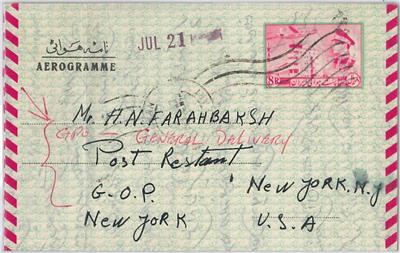 نامه هوائی
JUL 21
AEROGRAMME
8R
Mr. H.N. FARAHBAKSH
GPO — GENERAL DELIVERY
Post Restant
G.O.P. New York. N.Y
New York U.S.A